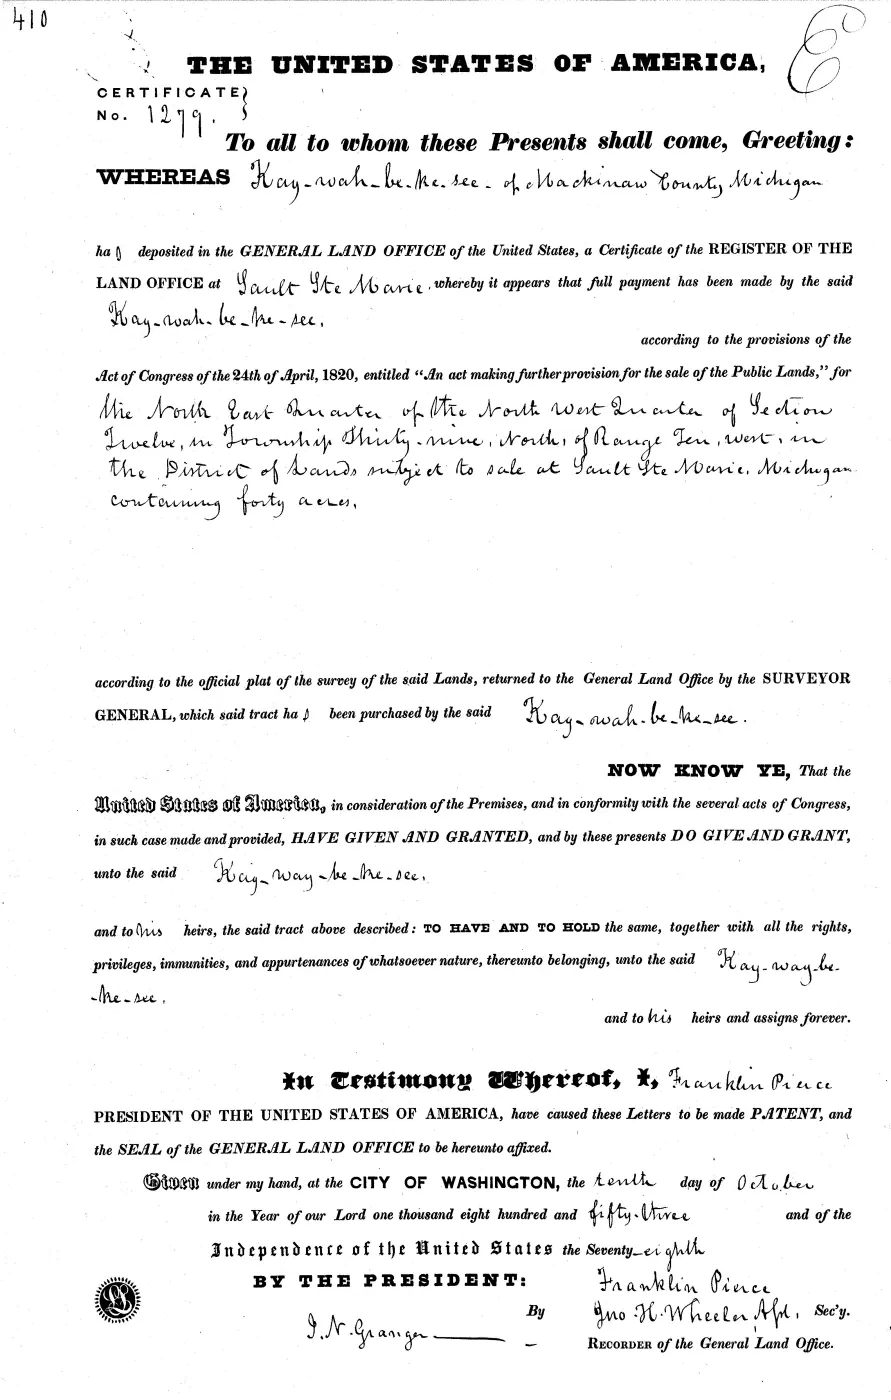 410
THE UNITED STATES OF AMERICA,
CERTIFICATE }
No. 1279.
To all to whom these Presents shall come, Greeting:
WHEREAS Kay-wah-be-ke-see- of Mackinaw County Michigan
ha s deposited in the GENERAL LAND OFFICE of the United States, a Certificate of the REGISTER OF THE
LAND OFFICE at Sault Ste Marie, whereby it appears that full payment has been made by the said
Kay-wah-be-ke-see,
according to the provisions of the
Act of Congress of the 24th of April, 1820, entitled "An act making further provision for the sale of the Public Lands," for
the North East Quarter of the North West Quarter of Section
Twelve, in Township Thirty-nine, North, of Range Ten, West, in
the District of Lands subject to sale at Sault Ste Marie, Michigan
containing forty acres,
according to the official plat of the survey of the said Lands, returned to the General Land Office by the SURVEYOR
GENERAL, which said tract ha s been purchased by the said Kay-wah-be-ke-see.
NOW KNOW YE, That the
United States of America, in consideration of the Premises, and in conformity with the several acts of Congress,
in such case made and provided, HAVE GIVEN AND GRANTED, and by these presents DO GIVE AND GRANT,
unto the said Kay-way-be-ke-see,
and to his heirs, the said tract above described: TO HAVE AND TO HOLD the same, together with all the rights,
privileges, immunities, and appurtenances of whatsoever nature, thereunto belonging, unto the said Kay-way-be-
-ke-see,
and to his heirs and assigns forever.
In Testimony Whereof, I, Franklin Pierce
PRESIDENT OF THE UNITED STATES OF AMERICA, have caused these Letters to be made PATENT, and
the SEAL of the GENERAL LAND OFFICE to be hereunto affixed.
Given under my hand, at the CITY OF WASHINGTON, the tenth day of October
in the Year of our Lord one thousand eight hundred and fifty-three and of the
Independence of the United States the Seventy-eighth
BY THE PRESIDENT: Franklin Pierce
By Jno. H. Wheeler Asst, Sec'y.
J. N. Granger
RECORDER of the General Land Office.